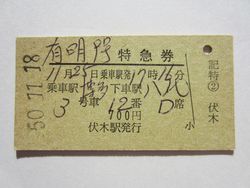 有明号 特急券
11月25日乗車駅発12時15分
乗車駅 博多 下車駅 八代
3号車 12番 D席
400円
伏木駅発行
小
50.11.18
記特② 伏木